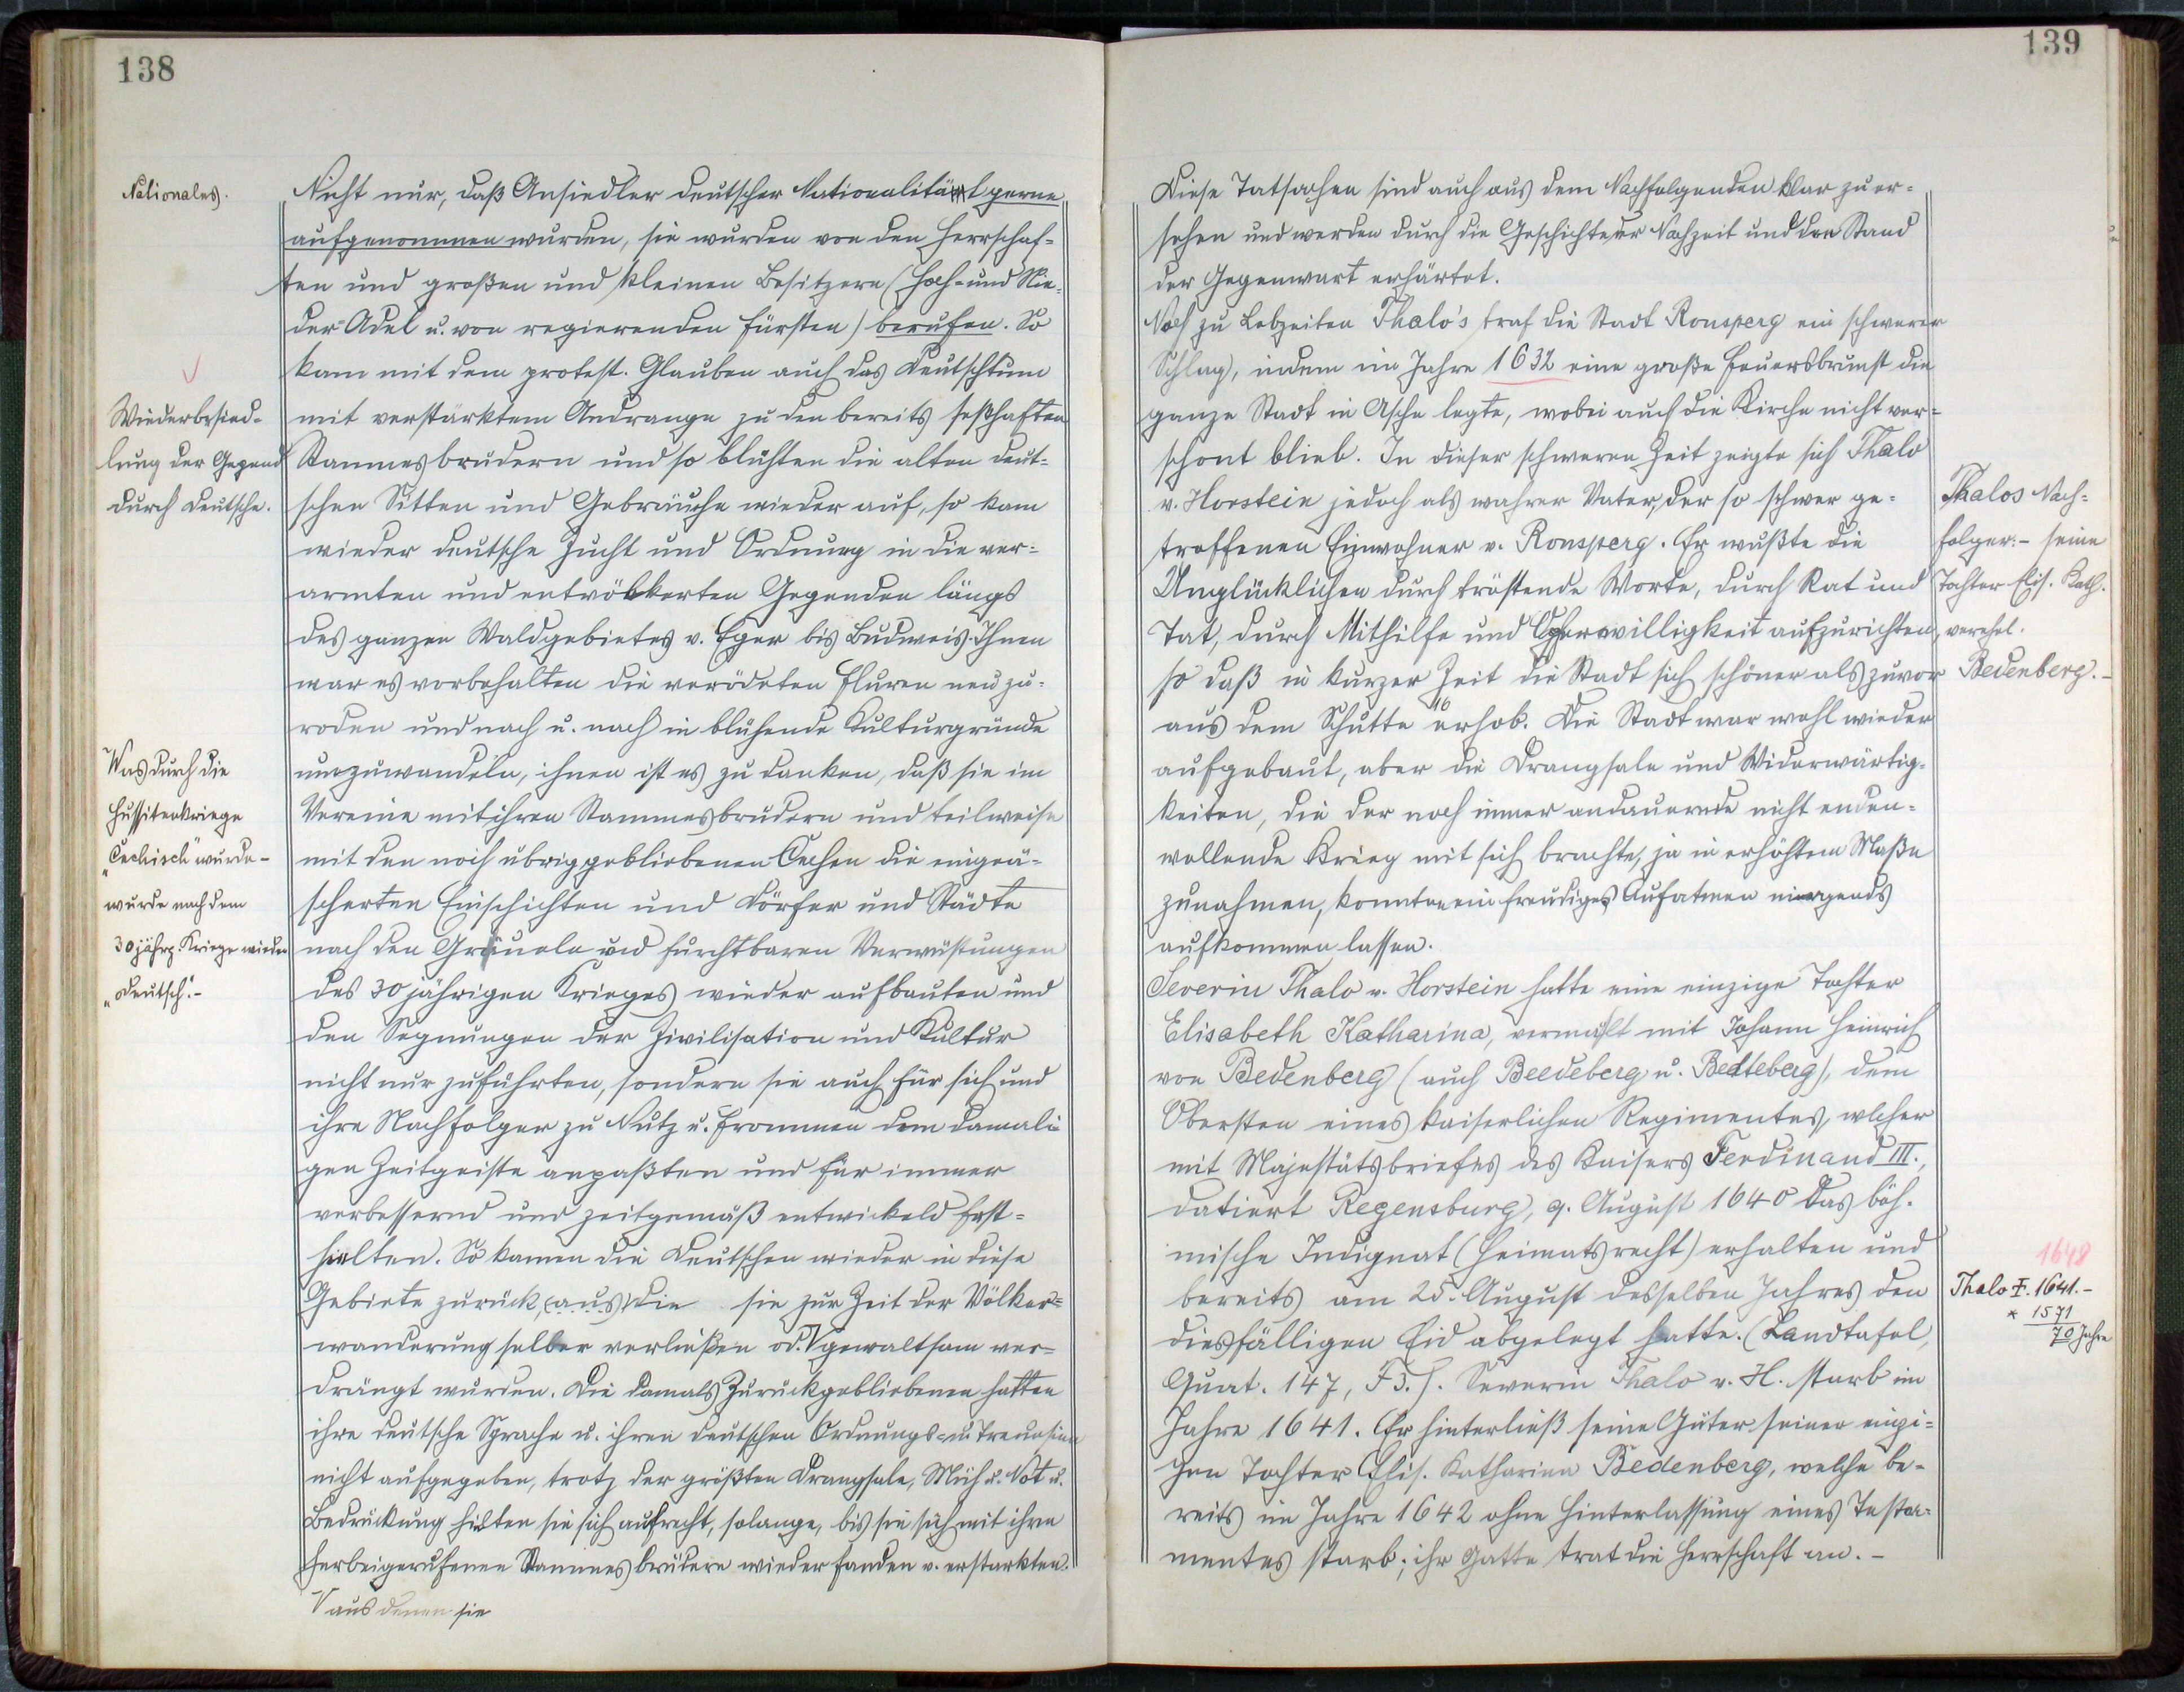 138
Nationales.
Nicht nur, daß Ansiedler deutscher Nationalität gerne
aufgenommen wurden, sie wurden von den Herrschaf-
ten und großen und kleinen Besitzern (Hoch- und Nie-
der-Adel u. von regierenden Fürsten) berufen. So
kam mit dem protest. Glauben auch das Deutschtum
Wiederbesied-
lung der Gegend
durch Deutsche.
mit verstärktem Andrange zu den bereits seßhaften
Stammesbrüdern und so blühten die alten deut-
schen Sitten und Gebräuche wieder auf, so kam
wieder deutsche Zucht und Ordnung in die ver-
armten und entvölkerten Gegenden längs
des ganzen Waldgebietes v. Eger bis Budweis. Ihnen
war es vorbehalten die verödeten Fluren neu zu
roden und nach u. nach in blühende Kulturgründe
Was durch die
Hussitenkriege
"Cechisch" wurde -
wurde nach dem
30 jährg. Kriege wieder
"deutsch".-
umzuwandeln, ihnen ist es zu danken, daß sie im
Vereine mit ihren Stammesbrüdern und teilweise
mit den noch übriggebliebenen Cechen die eingeä-
scherten Einschichten und Dörfer und Städte
nach den Gräueln und furchtbaren Verwüstungen
des 30 jährigen Krieges wieder aufbauten und
den Segnungen der Zivilisation und Kultur
nicht nur zuführten, sondern sie auch für sich und
ihre Nachfolger zu Nutz u. Frommen dem damali-
gen Zeitgeiste anpaßten und für immer
verbessernd und zeitgemäß entwickeld fest-
hielten. So kamen die Deutschen wieder in diese
Gebiete zurück, (aus) die sie zur Zeit der Völker-
wanderung selber verließen od. V gewaltsam ver-
drängt wurden. Die damals Zurückgebliebenen hatten
ihre deutsche Sprache u. ihren deutschen Ordnungs- u. Treuesinn
nicht aufgegeben, trotz der größten Drangsale, Müh u. Not u.
Bedrückung hielten sie sich aufrecht, solange, bis sie sich mit ihren
herbeigerufenen Stammesbrüdern wieder fanden u. erstarkten.
V aus denen sie
139
Diese Tatsachen sind auch aus dem Nachfolgenden klar zu er-
sehen und werden durch die Geschichte der Nachzeit und den Stand
der Gegenwart erhärtet.
Noch zu Lebzeiten Thalo's traf die Stadt Ronsperg ein schwerer
Schlag, indem im Jahre 1632 eine große Feuersbrunst die
ganze Stadt in Asche legte, wobei auch die Kirche nicht ver-
schont blieb. In dieser schweren Zeit zeigte sich Thalo
v. Horstein jedoch als wahrer Vater, der so schwer ge-
troffenen Einwohner v. Ronsperg. Er wußte die
Unglücklichen durch tröstende Worte, durch Rat und
Tat, durch Mithilfe und Opferwilligkeit aufzurichten,
so daß in kurzer Zeit die Stadt sich schöner als zuvor
Thalos Nach-
folger:- seine
Tochter Elis. Kath.
verehel.
Bedenberg.-
aus dem Schutte erhob. Die Stadt war wohl wieder
aufgebaut, aber die Drangsale und Widerwärtig-
keiten, die der noch immer andauernde nicht enden-
wollende Krieg mit sich brachte, ja in erhöhtem Maße
zunahmen, konnten ein freudiges Aufatmen nirgends
aufkommen lassen.
Severin Thalo v. Horstein hatte eine einzige Tochter
Elisabeth Katharina, vermählt mit Johann Heinrich
von Bedenberg (auch Beedeberg u. Bedteberg), dem
Obersten eines kaiserlichen Regimentes, wlcher
mit Majestätsbriefes des Kaisers Ferdinand III.,
datiert Regensburg, 9. August 1640 das böh-
mische Indignat (Heimatsrecht) erhalten und
bereits am 25. August desselben Jahres den
diesfälligen Eid abgelegt hatte. (Landtafel,
Quat. 147, F 3.). Severin Thalo v. H. starb im
Jahre 1641. Er hinterließ seine Güter seiner einzi-
gen Tochter Elis. Katharina Bedenberg, welche be-
reits im Jahre 1642 ohne Hinterlassung eines Testa-
mentes starb; ihr Gatte trat die Herrschaft an.-
1648
Thalo ‡. 1641.-
* 1571
70 Jahre